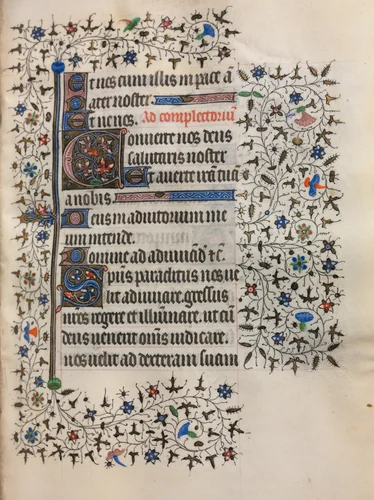 Et nos cum illis in pace a
ater noster.
Et ne nos. Ad complectoriu
Conuerte nos deus
salutaris noster
Et auerte iram tua
a nobis.
Deus in adiutorium me
um intende.
Domine ad adiuuand etc.
Spus paraclitus nos ue
lit adiuuare. gressus
nros regere et illuminare. ut cu
deus uenerit omis iudicare.
nos uelit ad dexteram suam